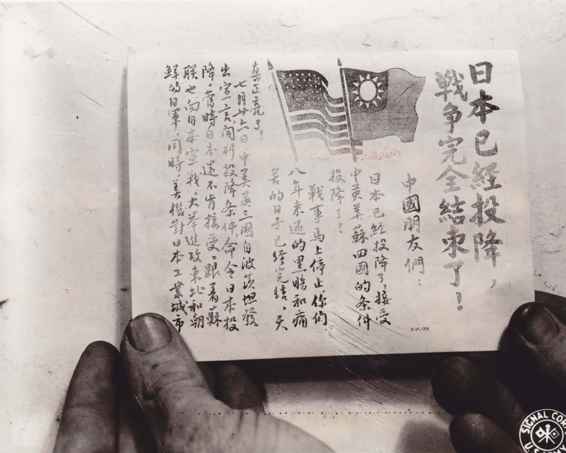 日本已經投降，
戰争完全結束了！
中國朋友們：
日本已經投降了，接受
中英美蘇四國的条件
投降了！
戰事馬上停止你们
八年來過的黑暗和痛
苦的日子已经完結，天
真正亮了。
七月廿六日中美英三國自波茨坦發
出宣言開列投降条件命令日本投
降，當時日本還不肯接受。跟着蘇
联也向日本宣戰大举進攻東北和朝
鮮的日軍，同時美機對日本工業城市
SIGNAL COR